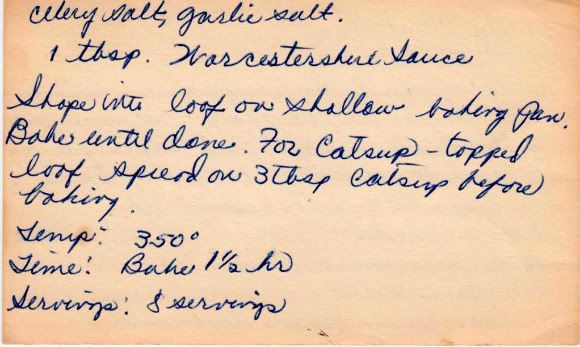 celery salt, garlic salt.
1 tbsp. Worcestershire Sauce
Shape into loaf on shallow baking pan.
Bake until done. For Catsup-topped
loaf spread on 3 tbsp catsup before
baking.
Temp: 350°
Time: Bake 1½ hr
Servings: 8 servings